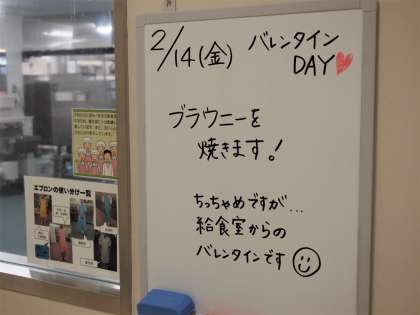 2/14(金) バレンタイン
DAY
ブラウニーを
焼きます!
ちっちゃめですが...
給食室からの
バレンタインです
エプロンの使い分け一覧